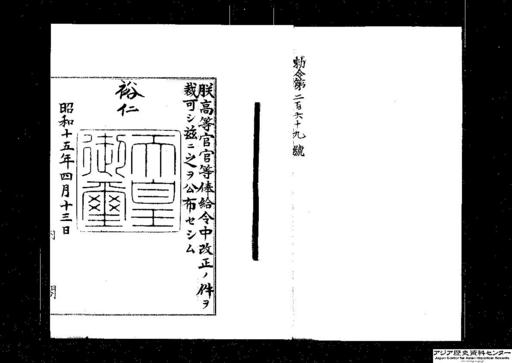 勅令第二百六十九號
朕高等官官等俸給令中改正ノ件ヲ
裁可シ茲ニ之ヲ公布セシム
裕仁
天皇
御璽
昭和十五年四月十三日
閣
アジア歴史資料センター
Japan Center for Asian Historical Records